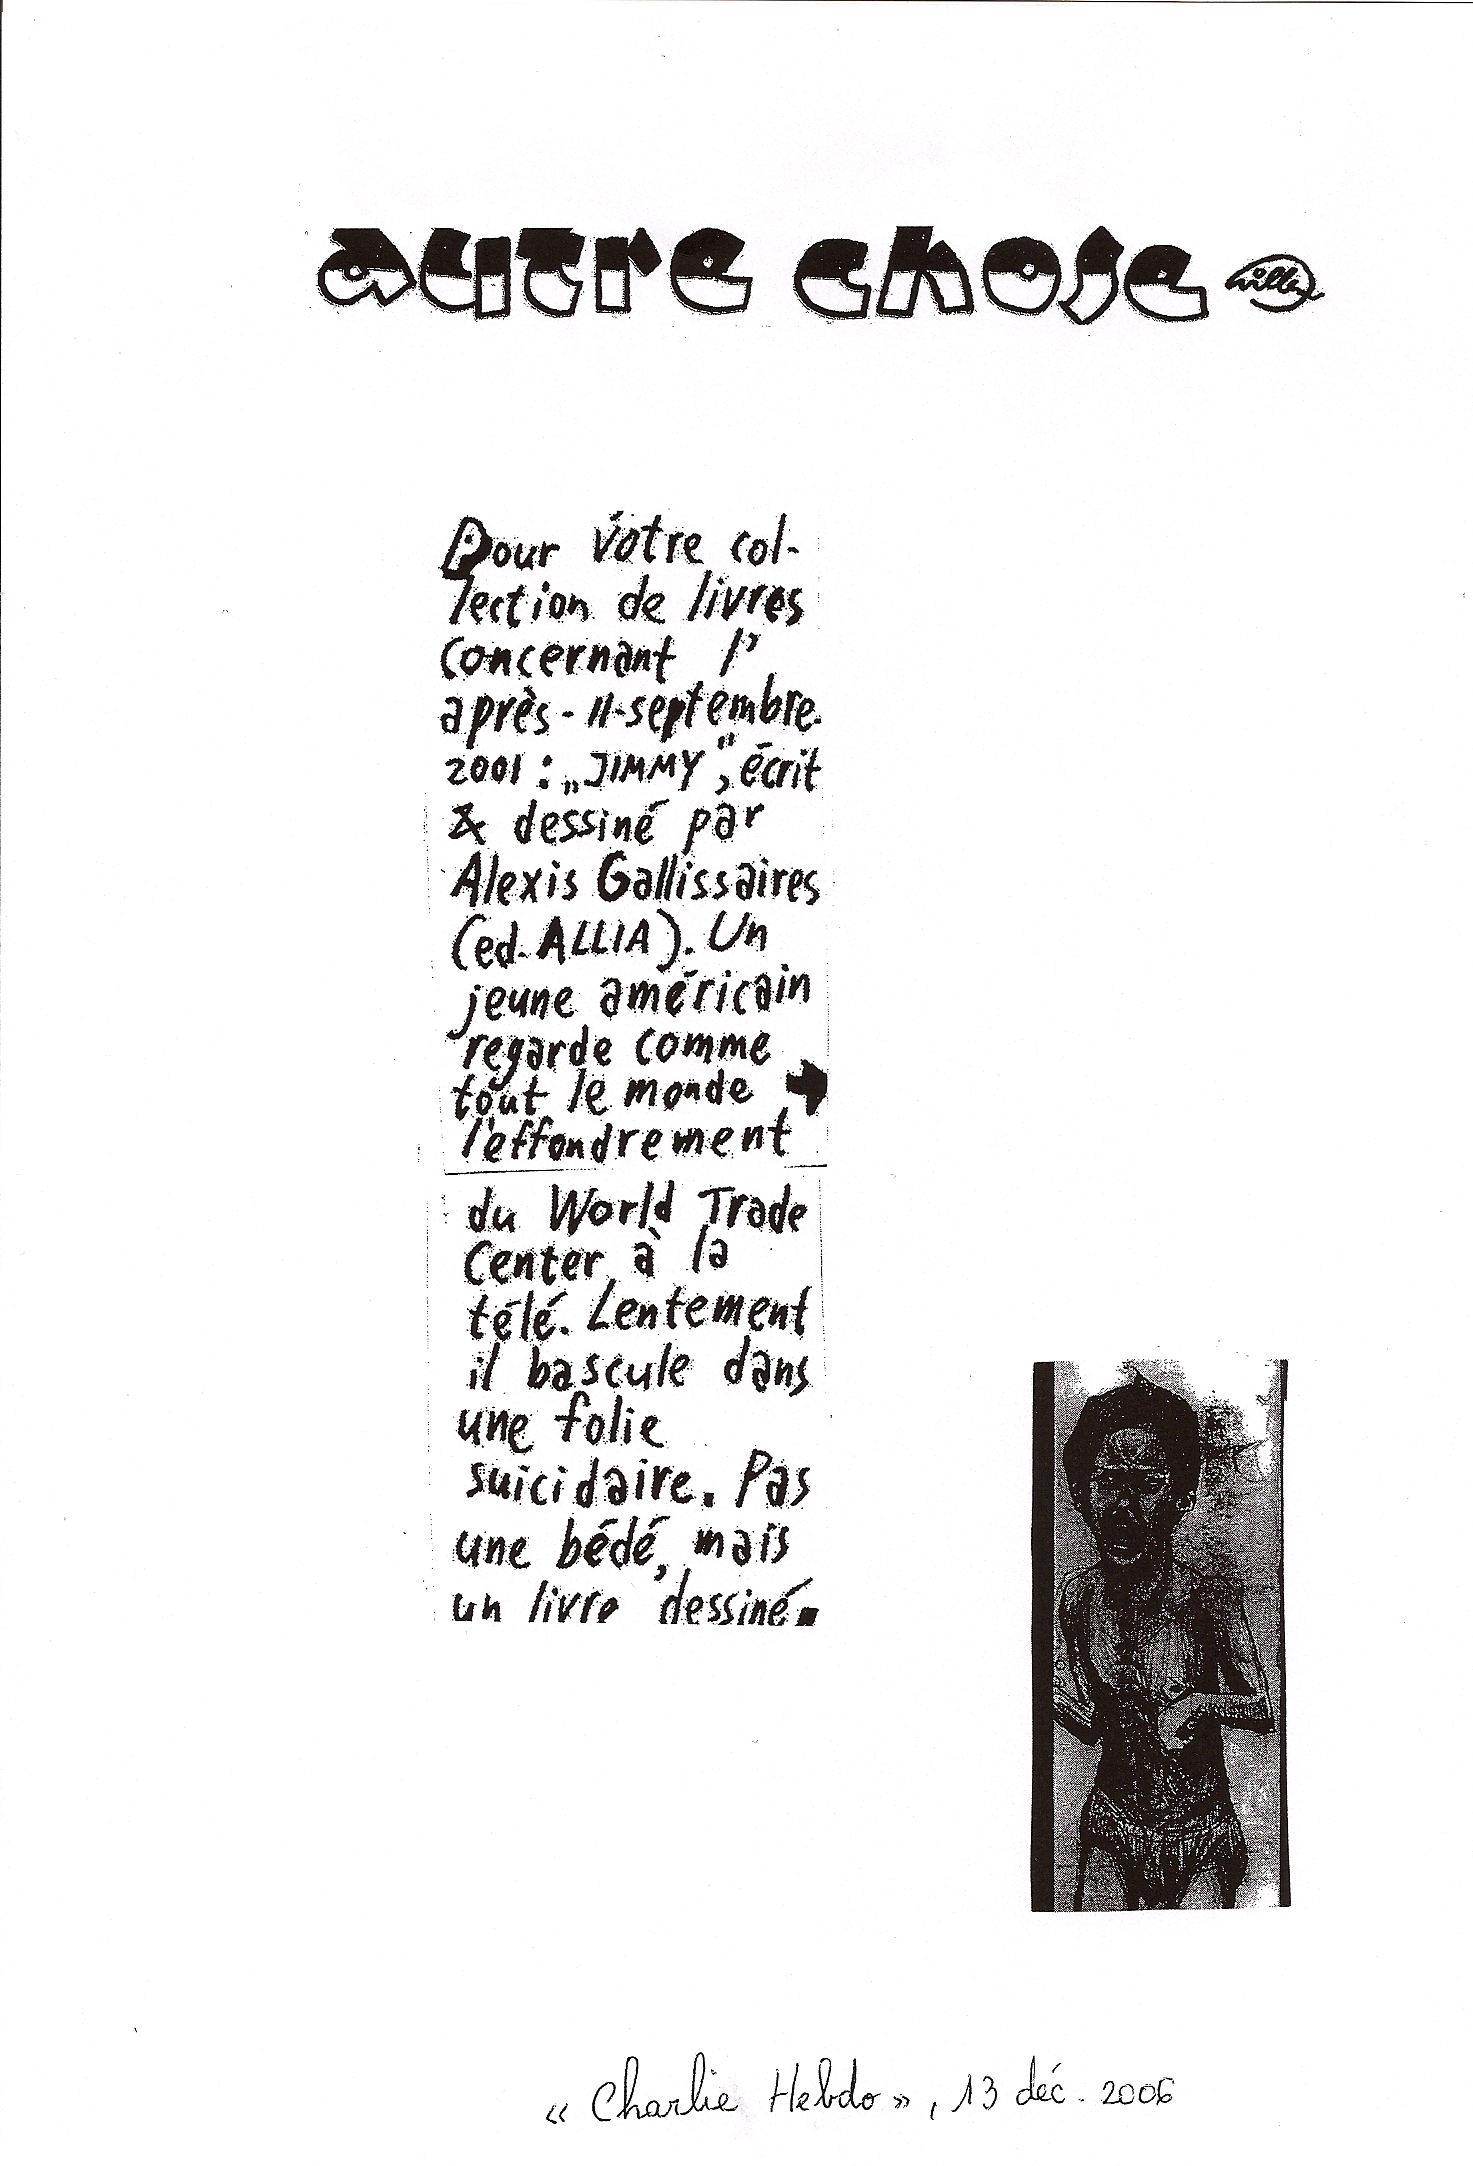 autre chose willem
Pour votre col-
lection de livres
concernant l'
après-11-septembre-
2001 : „JIMMY”, écrit
& dessiné par
Alexis Gallissaires
(ed. ALLIA). Un
jeune américain
regarde comme
tout le monde
l'effondrement
du World Trade
Center à la
télé. Lentement
il bascule dans
une folie
suicidaire. Pas
une bédé, mais
un livre dessiné.
« Charlie Hebdo », 13 déc. 2006